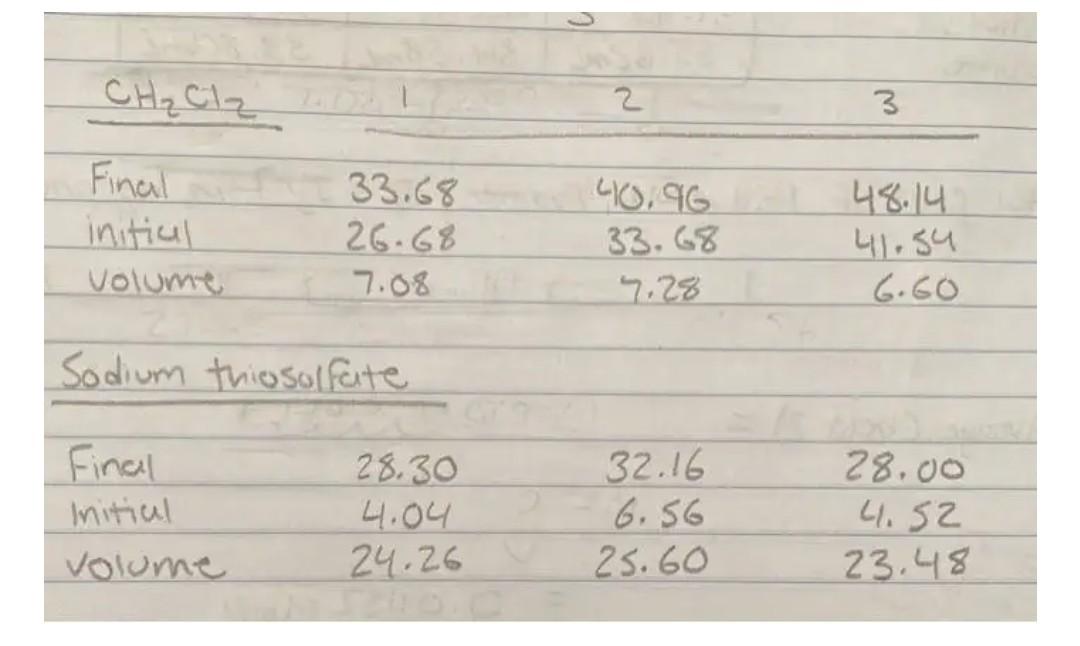 CH2Cl2 1 2 3
Final 33.68 40.96 48.14
initial 26.68 33.68 41.54
volume 7.08 7.28 6.60
Sodium thiosulfate
Final 28.30 32.16 28.00
Initial 4.04 6.56 4.52
volume 24.26 25.60 23.48